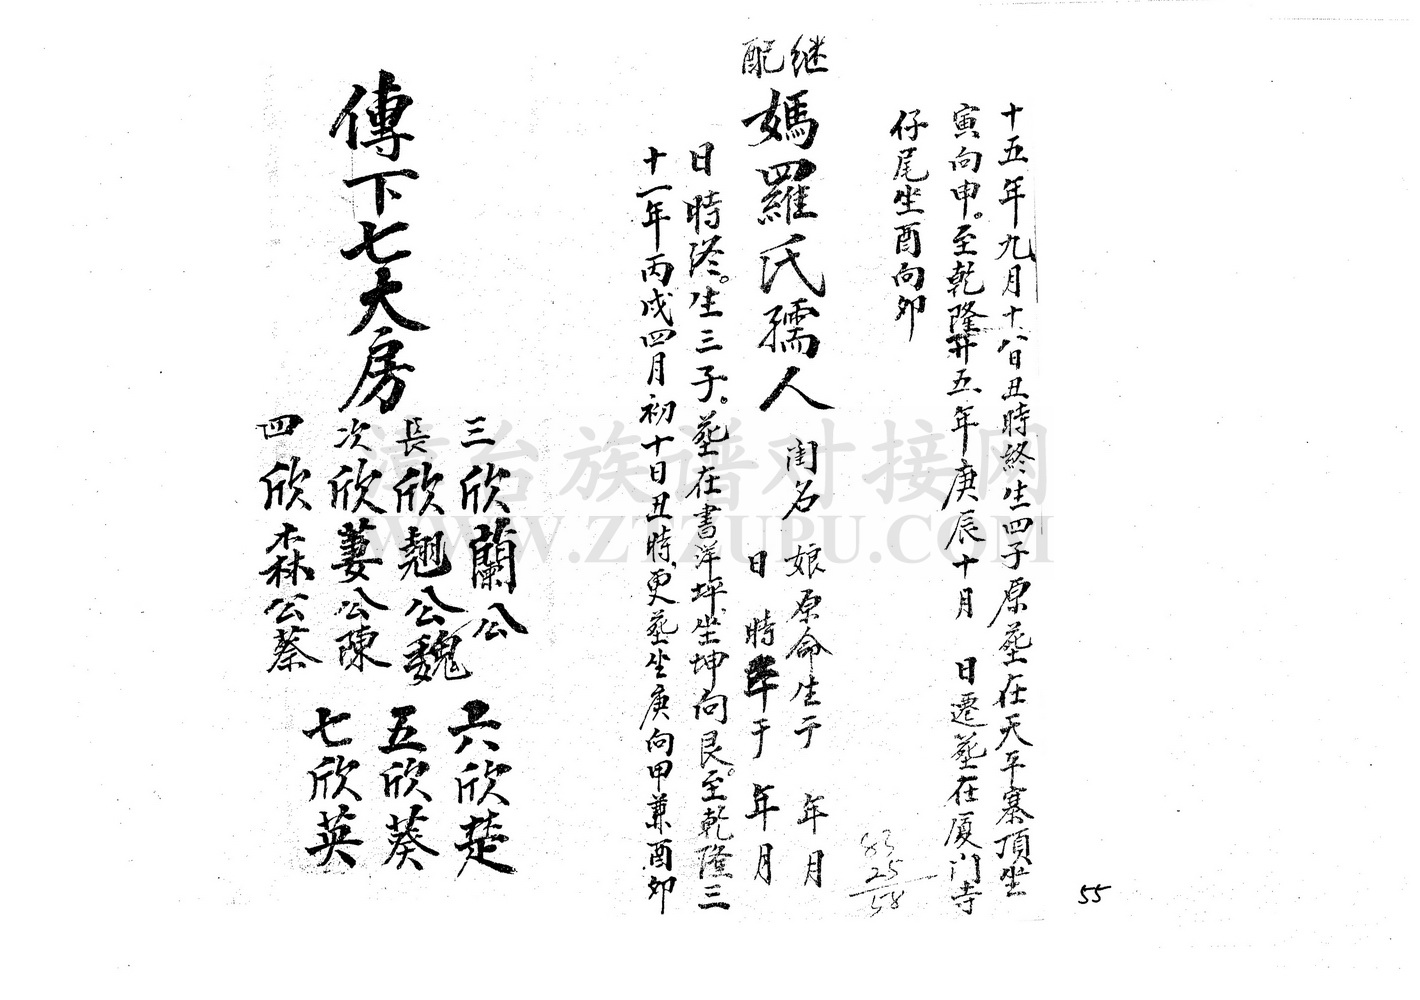 十五年九月十八日丑時終生四子原葬在天平寨頂坐
寅向申。至乾隆廿五年庚辰十月 日遷葬在厦门寺
仔尾坐酉向卯
继配
媽羅氏孺人
闺名 娘原命生于 年月
日 時 年于 年月
日時終。生三子。葬在書洋坪、坐坤向艮。至乾隆三
十一年丙戌四月初十日丑時、更葬坐庚向甲兼酉卯
傳下七大房
三欣蘭公
長欣翹公魏
次欣萋公陳
四欣森公蔡
六欣楚
五欣葵
七欣英
83
25
58
55
漳台族谱对接网
WWW.ZTZUPU.COM